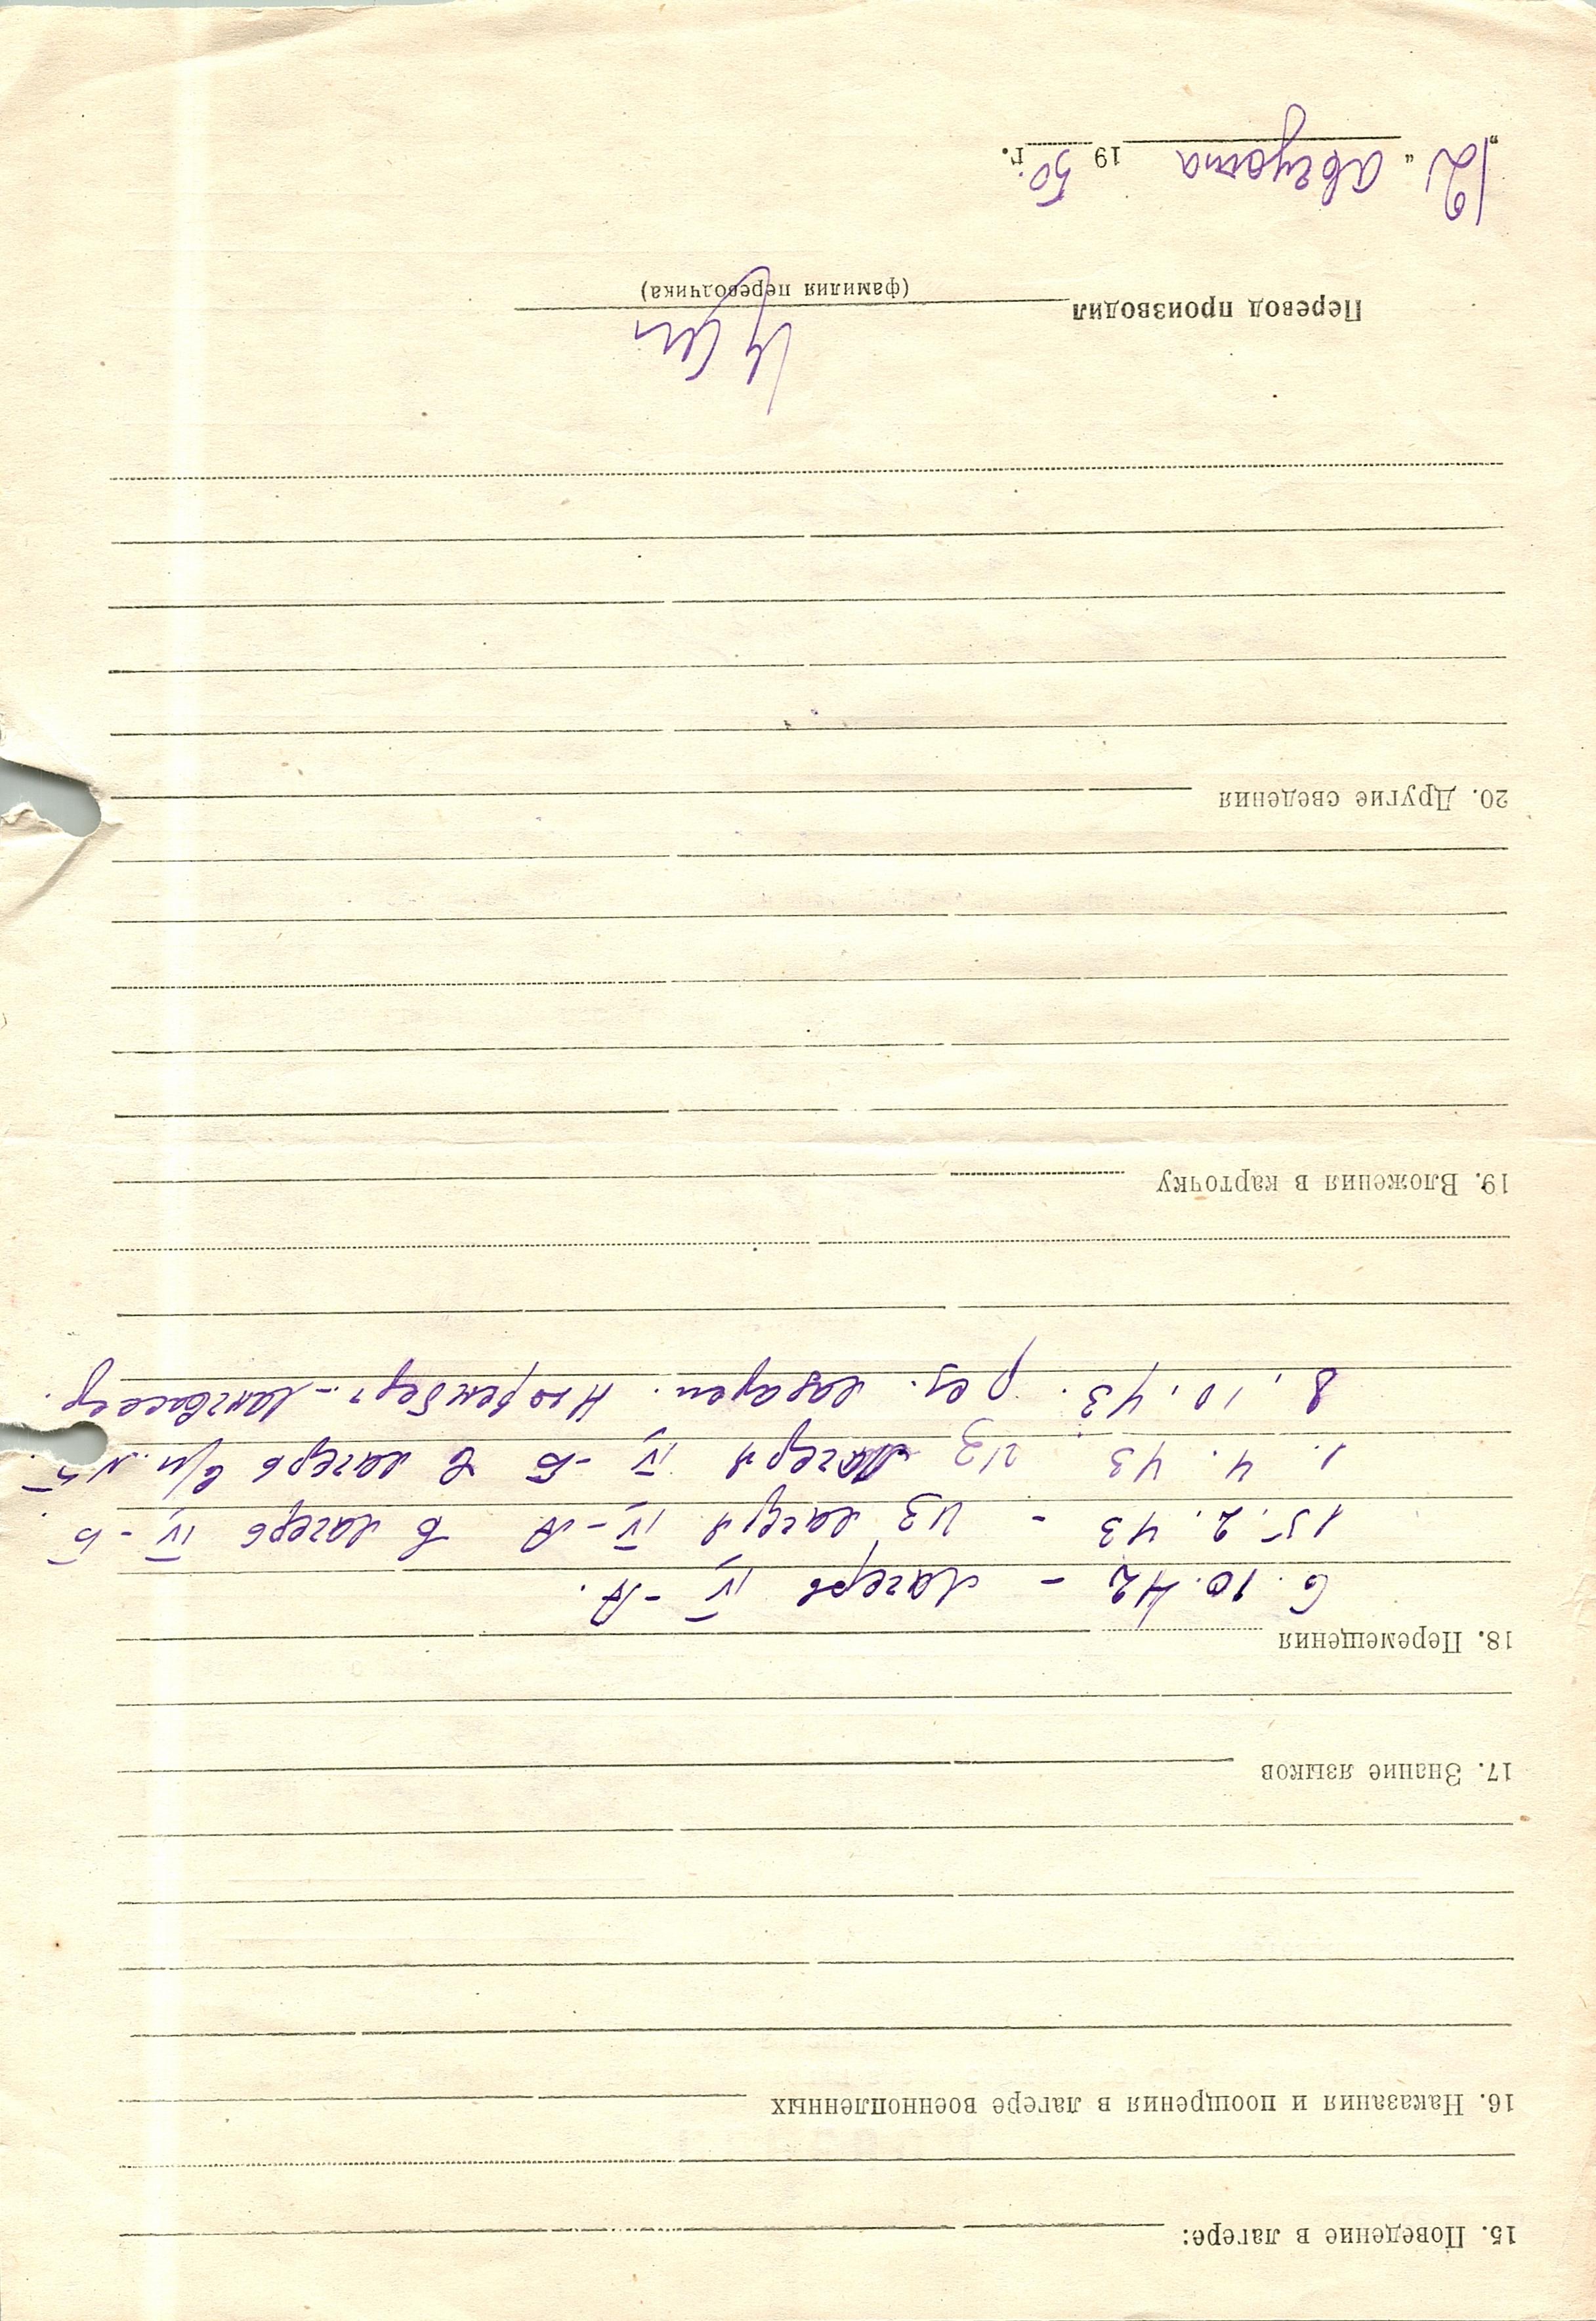 15. Поведение в лагере:
16. Наказания и поощрения в лагере военнопленных
17. Знание языков
18. Перемещения
6. 10. 42 – лагерь IV – А.
15. 2. 43 – из лагеря IV – А в лагерь IV – Б.
1. 4. 43 из лагеря IV – Б в лагерь в/п
8. 10. 43. рез. лазарет. Нюренберг – Лангвассер.
19. Вложения в карточку
20. Другие сведения
Перевод производил
(фамилия переводчика)
„12“ августа 1950 г.